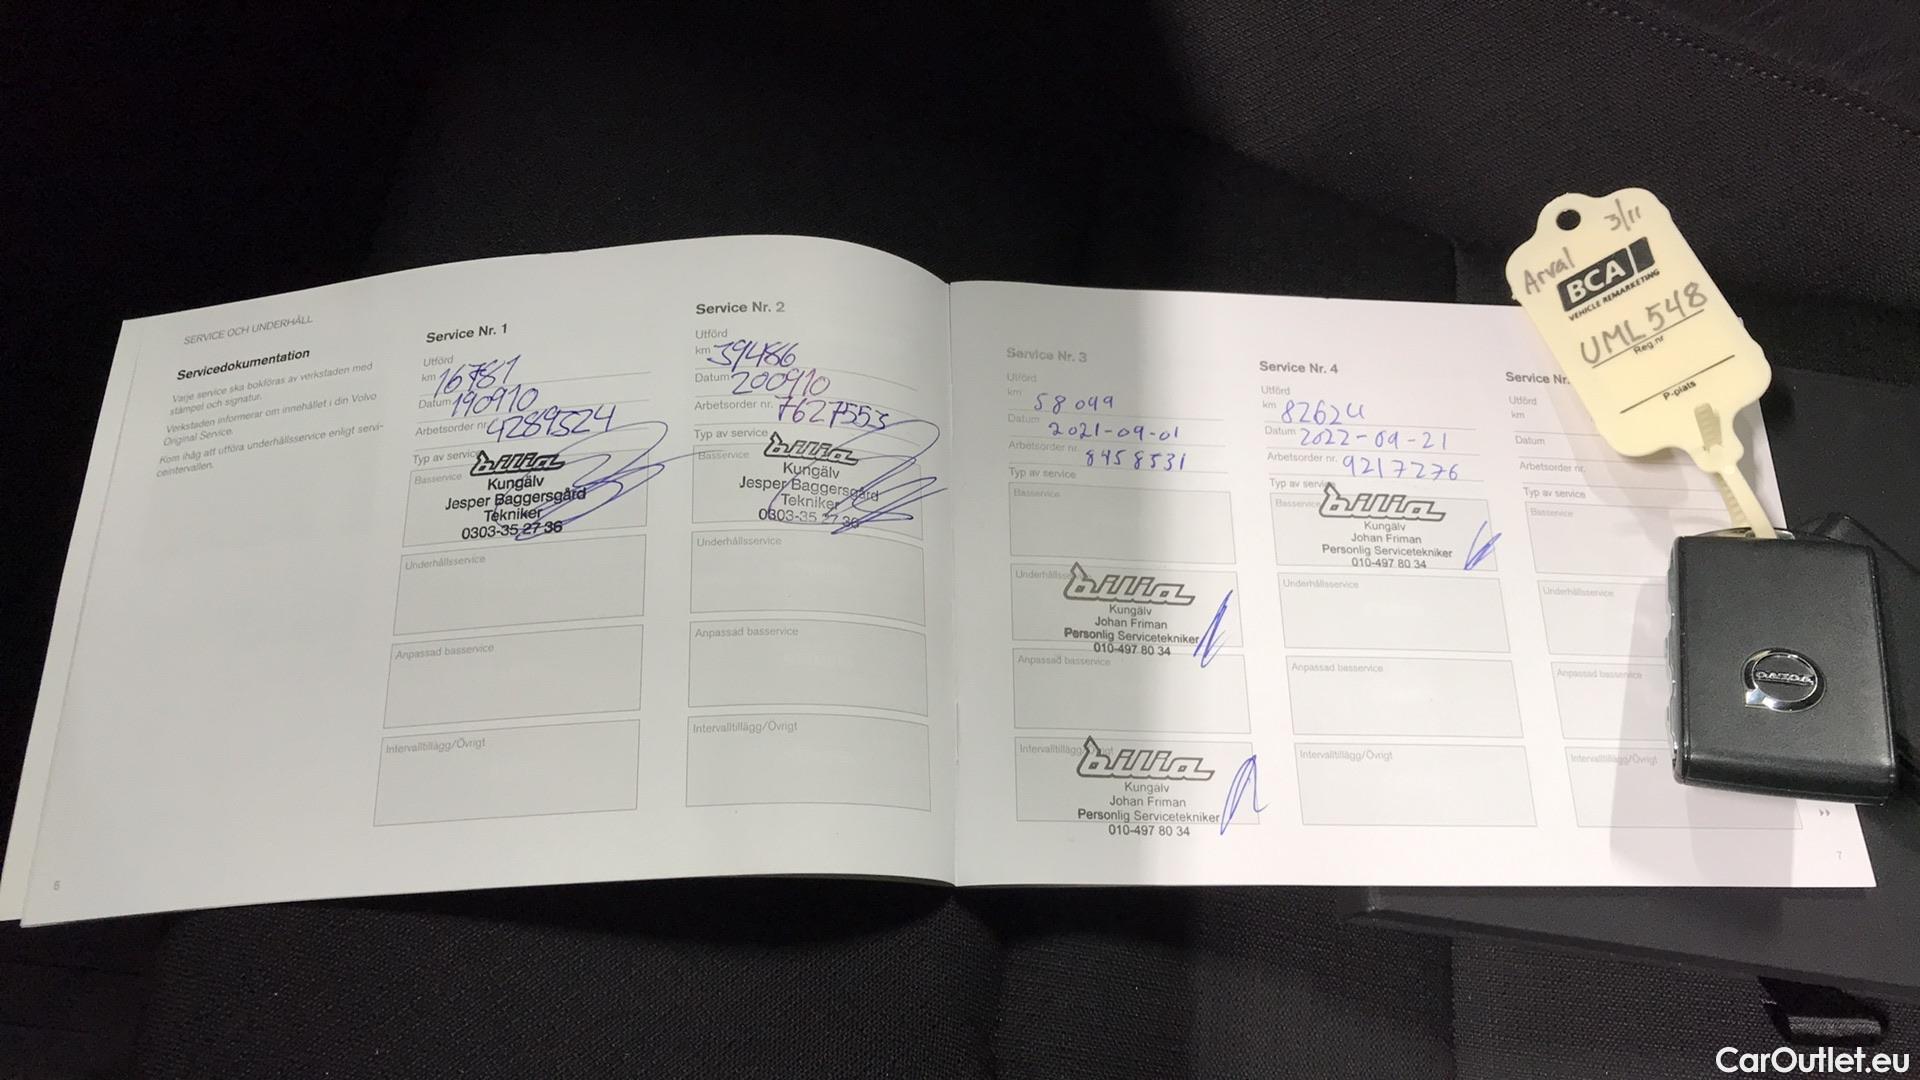 SERVICE OCH UNDERHÅLL
Servicedokumentation
Varje service ska bokföras av verkstaden med
stämpel och signatur.
Verkstaden informerar om innehållet i din Volvo
Original Service.
Kom ihåg att utföra underhållsservice enligt servi-
ceintervallen.
6
Service Nr. 1
Utförd
km 16781
Datum 190910
Arbetsorder nr. 4289324
Typ av service
Basservice
bilia
Kungälv
Jesper Baggersgård
Tekniker
0303-35 27 36
Underhållsservice
Anpassad basservice
Intervalltillägg/Övrigt
Service Nr. 2
Utförd
km 39486
Datum 200910
Arbetsorder nr. 7627553
Typ av service
Basservice
bilia
Kungälv
Jesper Baggersgård
Tekniker
0303-35 27 36
Underhållsservice
Anpassad basservice
Intervalltillägg/Övrigt
Service Nr. 3
Utförd
km 58099
Datum 2021-09-01
Arbetsorder nr. 8458531
Typ av service
Basservice
Underhållsservice
bilia
Kungälv
Johan Friman
Personlig Servicetekniker
010-497 80 34
Anpassad basservice
Intervalltillägg/Övrigt
bilia
Kungälv
Johan Friman
Personlig Servicetekniker
010-497 80 34
Service Nr. 4
Utförd
km 82624
Datum 2022-09-21
Arbetsorder nr. 9217276
Typ av service
Basservice
bilia
Kungälv
Johan Friman
Personlig Servicetekniker
010-497 80 34
Underhållsservice
Anpassad basservice
Intervalltillägg/Övrigt
Service Nr.
Utförd
km
Datum
Arbetsorder nr.
Typ av service
Basservice
Underhållsservice
Anpassad basservice
Intervalltillägg/Övrigt
7
3/11
Arval
BCA
VEHICLE REMARKETING
UML548
Reg.nr
P-plats
VOLVO
CarOutlet.eu